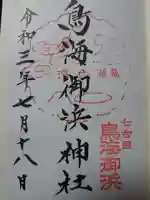 鳥海御浜神社
令和三年七月十八日
七合目
鳥海御浜